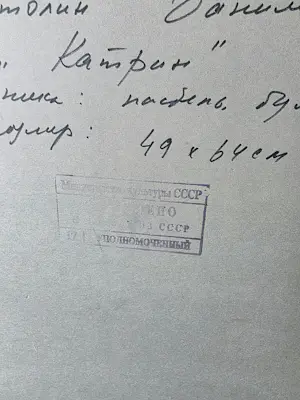 толин Даним
" Катрин"
ника: пастель, бум
змер: 49 х 64 см
Министерство культуры СССР
СССР
УПОЛНОМОЧЕННЫЙ